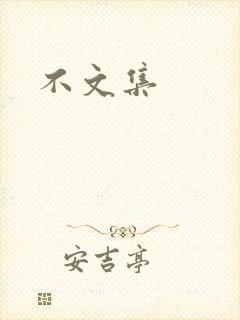 不文集
安吉亭